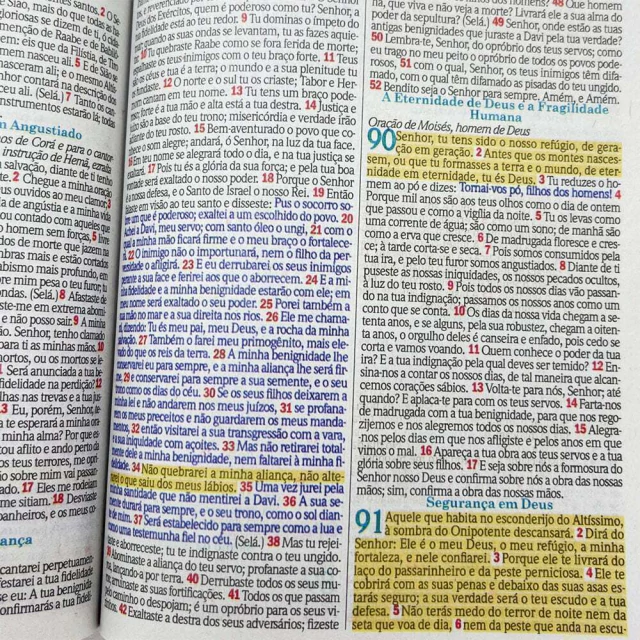 entes santos. 2 O Se
Sião, mais do que todas as ha
gloriosas se dizem de ti, ó cida
menção de Raabe e de Babilô
cem: eis que da Filístia, de Tir
mem nasceu ali. 5 E de Sião se
asceram ali; e o mesmo Altís
hor contará na descrição dos
ceu ali. (Selá.) 7 Tanto os ca
instrumentos estarão lá; toda
m Angustiado
nos de Corá e para o cantor-
instrução de Hemã, ezraíta
salvação, diante de ti tenho
e. 2 Chegue a minha oração
us ouvidos ao meu clamor; 3
ia de angústias, e a minha vida
ou contado com aqueles que
homem sem forças, 5 livre
dos de morte que jazem na
bras mais e estão cortados
abismo mais profundo, em
re mim pesa o teu furor; tu
ondas. (Selá.) 8 Afastaste de
ste-me em extrema abomi-
e não posso sair. 9 A minha
ão. Senhor, tenho clamado
para ti as minhas mãos. 10
mortos, ou os mortos se le-
Será anunciada a tua be-
fidelidade na perdição? 12
lhas nas trevas e a tua jus-
3 Eu, porém, Senhor,
a te esperará a minha ora-
minha alma? Por que es
tou aflito e ando perto d
os teus terrores, me opri-
o sobre mim vai passan-
ado. 17 Eles me rodeiam
me sitiam. 18 Desviaste
panheiros, e os meus co-
ança
cantarei perpetuamen-
festarei a tua fidelidade
se eu: A tua benignida-
onfirmarás a tua fideli-
e reverenciado por todos os que o cercam.
dos Exércitos, quem é poderoso como tu? Senhor, a
fidelidade ao teu redor. 9 Tu dominas o ímpeto do
mar; quando as suas ondas se levantam, tu as fazes aquie-
10 Tu quebraste Raabe como se fora ferida de morte;
espalhaste os teus inimigos com o teu braço forte. 11 Teus
os céus e tua é a terra; o mundo e a sua plenitude tu
fundaste. 12 O norte e o sul tu os criaste; Tabor e Her-
mom cantam em teu nome. 13 Tu tens um braço pode-
roso; forte é a tua mão e alta está a tua destra. 14 Justiça e
são a base do teu trono; misericórdia e verdade irão
adiante do teu rosto. 15 Bem-aventurado o povo que co-
o som alegre; andará, ó Senhor, na luz da tua face.
16 Em teu nome se alegrará todo o dia, e na tua justiça se
exaltará. 17 Pois tu és a glória da sua força; e pela tua boa
vontade será exaltado o nosso poder. 18 Porque o Senhor
é a nossa defesa, e o Santo de Israel o nosso Rei. 19 Então
falaste em visão ao teu santo e disseste: Pus o socorro so-
bre um que é poderoso; exaltei a um escolhido do povo. 20
Achei a Davi, meu servo; com santo óleo o ungi, 21 com o
qual a minha mão ficará firme e o meu braço o fortalece-
rá. 22 O inimigo não o importunará, nem o filho da per-
versidade o afligirá. 23 E eu derrubarei os seus inimigos
perante a sua face e ferirei aos que o aborrecem. 24 E a mi-
nha fidelidade e a minha benignidade estarão com ele; em
meu nome será exaltado o seu poder. 25 Porei também a
sua mão no mar e a sua direita nos rios. 26 Ele me chama-
rá, dizendo: Tu és meu pai, meu Deus, e a rocha da minha
salvação. 27 Também o farei meu primogênito, mais ele-
vado do que os reis da terra. 28 A minha benignidade lhe
conservarei eu para sempre, e a minha aliança lhe será fir-
me, 29 e conservarei para sempre a sua semente, e o seu
trono como os dias do céu. 30 Se os seus filhos deixarem a
minha lei e não andarem nos meus juízos, 31 se profana-
rem os meus preceitos e não guardarem os meus manda-
mentos, 32 então visitarei a sua transgressão com a vara,
e a sua iniquidade com açoites. 33 Mas não retirarei total-
mente dele a minha benignidade, nem faltarei à minha fi-
delidade. 34 Não quebrarei a minha aliança, não alte-
rarei o que saiu dos meus lábios. 35 Uma vez jurei pela
minha santidade que não mentirei a Davi. 36 A sua se-
mente durará para sempre, e o seu trono, como o sol dian-
te de mim. 37 Será estabelecido para sempre como a lua e
como uma testemunha fiel no céu. (Selá.) 38 Mas tu rejei-
taste e aborreceste; tu te indignaste contra o teu ungido.
39 Abominaste a aliança do teu servo; profanaste a sua co-
roa, lançando-a por terra. 40 Derrubaste todos os seus mu-
ros; arruinaste as suas fortificações. 41 Todos os que passam
pelo caminho o despojam; é um opróbrio para os seus vi-
zinhos. 42 Exaltaste a destra dos seus adversários; fizeste
homens! 48 Que homem
ria, que viva e não veja a morte? Livrará ele a sua alma do
poder da sepultura? (Selá.) 49 Senhor, onde estão as tuas
antigas benignidades que juraste a Davi pela tua verdade?
50 Lembra-te, Senhor, do opróbrio dos teus servos; como
eu trago no meu peito o opróbrio de todos os povos pode-
rosos, 51 com o qual, Senhor, os teus inimigos têm difa-
mado, com o qual têm difamado as pisadas do teu ungido.
52 Bendito seja o Senhor para sempre. Amém, e Amém.
A Eternidade de Deus e a Fragilidade
Humana
Oração de Moisés, homem de Deus
90 Senhor, tu tens sido o nosso refúgio, de gera-
ção em geração. 2 Antes que os montes nasces-
sem, ou que tu formasses a terra e o mundo, de eter-
nidade em eternidade, tu és Deus. 3 Tu reduzes o ho-
mem ao pó e dizes: Tornai-vos pó, filhos dos homens! 4
Porque mil anos são aos teus olhos como o dia de ontem
que passou e como a vigília da noite. 5 Tu os levas como
uma corrente de água; são como um sono; de manhã são
como a erva que cresce. 6 De madrugada floresce e cres-
ce; à tarde corta-se e seca. 7 Pois somos consumidos pela
tua ira, e pelo teu furor somos angustiados. 8 Diante de ti
puseste as nossas iniquidades, os nossos pecados ocultos,
à luz do teu rosto. 9 Pois todos os nossos dias vão passan-
do na tua indignação; passamos os nossos anos como um
conto que se conta. 10 Os dias da nossa vida chegam a se-
tenta anos, e se alguns, pela sua robustez, chegam a oiten-
ta anos, o orgulho deles é canseira e enfado, pois cedo se
corta e vamos voando. 11 Quem conhece o poder da tua
ira? E a tua indignação pela qual deves ser temido? 12 En-
sina-nos a contar os nossos dias, de tal maneira que alcan-
cemos corações sábios. 13 Volta-te para nós, Senhor; até
quando? E aplaca-te para com os teus servos. 14 Farta-nos
de madrugada com a tua benignidade, para que nos rego-
zijemos e nos alegremos todos os nossos dias. 15 Alegra-
-nos pelos dias em que nos afligiste e pelos anos em que
vimos o mal. 16 Apareça a tua obra aos teus servos e a tua
glória sobre seus filhos. 17 E seja sobre nós a formosura do
Senhor nosso Deus e confirma sobre nós a obra das nossas
mãos; sim, confirma a obra das nossas mãos.
Segurança em Deus
91 Aquele que habita no esconderijo do Altíssimo,
à sombra do Onipotente descansará. 2 Dirá do
Senhor: Ele é o meu Deus, o meu refúgio, a minha
fortaleza, e nele confiarei. 3 Porque ele te livrará do
laço do passarinheiro e da peste perniciosa. 4 Ele te
cobrirá com as suas penas e debaixo das suas asas es-
tarás seguro; a sua verdade será o teu escudo e a tua
defesa. 5 Não terás medo do terror de noite nem da
seta que voa de dia, 6 nem da peste que anda na escu-